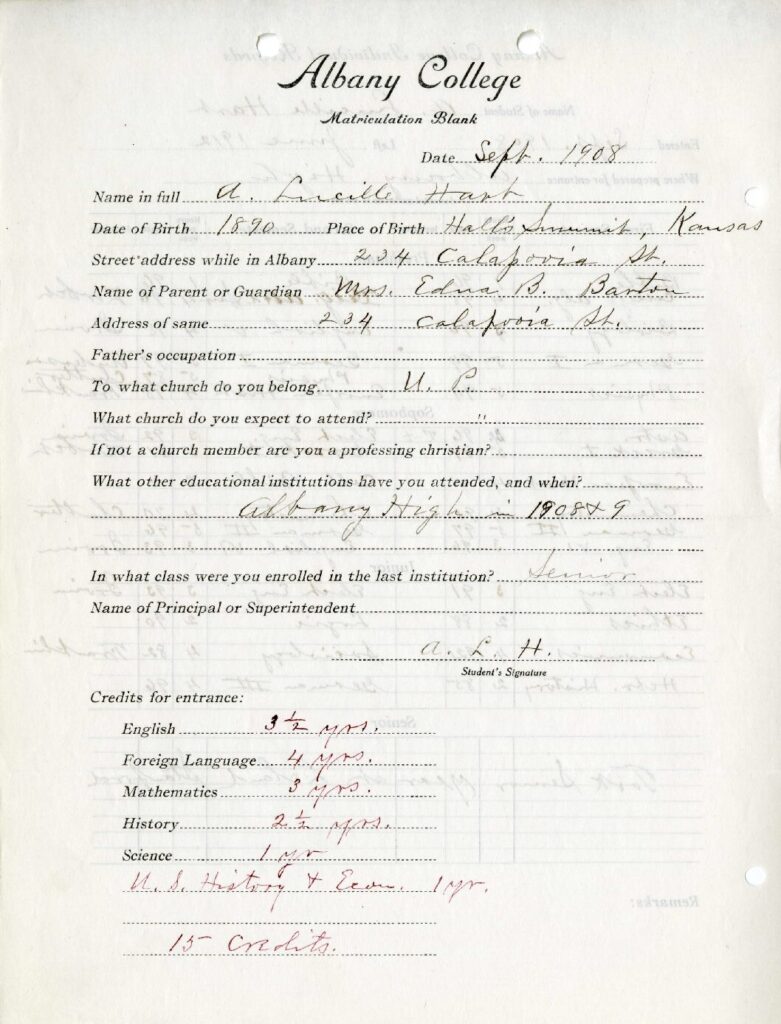 Albany College
Matriculation Blank
Date Sept. 1908
Name in full A. Lucille Hart
Date of Birth 1890 Place of Birth Hall's Summit, Kansas
Street address while in Albany 234 Calapooia St.
Name of Parent or Guardian Mrs. Edna B. Barton
Address of same 234 Calapooia St.
Father's occupation
To what church do you belong U. P.
What church do you expect to attend? "
If not a church member are you a professing christian?
What other educational institutions have you attended, and when?
Albany High in 1908 & 9
In what class were you enrolled in the last institution? Senior
Name of Principal or Superintendent
A. L. H.
Student's Signature
Credits for entrance:
English 3 ½ yrs.
Foreign Language 4 yrs.
Mathematics 3 yrs.
History 2 ½ yrs.
Science 1 yr
U. S. History & Econ. 1 yr.
15 Credits.